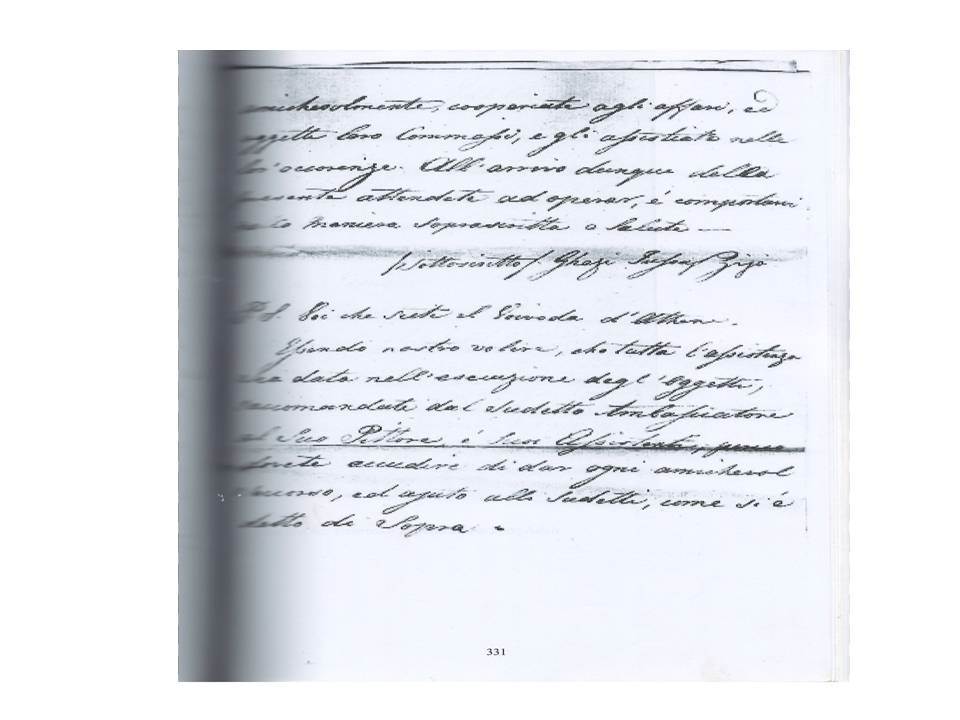 amichevolmente, cooperiate agli affari, ed
oggetti loro Commessi, e gli assistiate nelle
lor' occorenze. All' arrivo dunque della
presente attendete ad operar, é comportarvi
maniera soprascritta e Salute —
/sottoscritto/ Ghazi
P.S. Voi che siete il Voivoda d'Athene.
Essendo nostro volere, che tutta l'assistenza
sia data nell' esecuzione degl' oggetti,
raccomandati dal sudetto Ambasciatore
al Suo Pittore, é suoi Assistenti,
accudire di dar ogni amichevol
soccorso, ed ajuto alli Sudetti, come si é
detto di Sopra
331